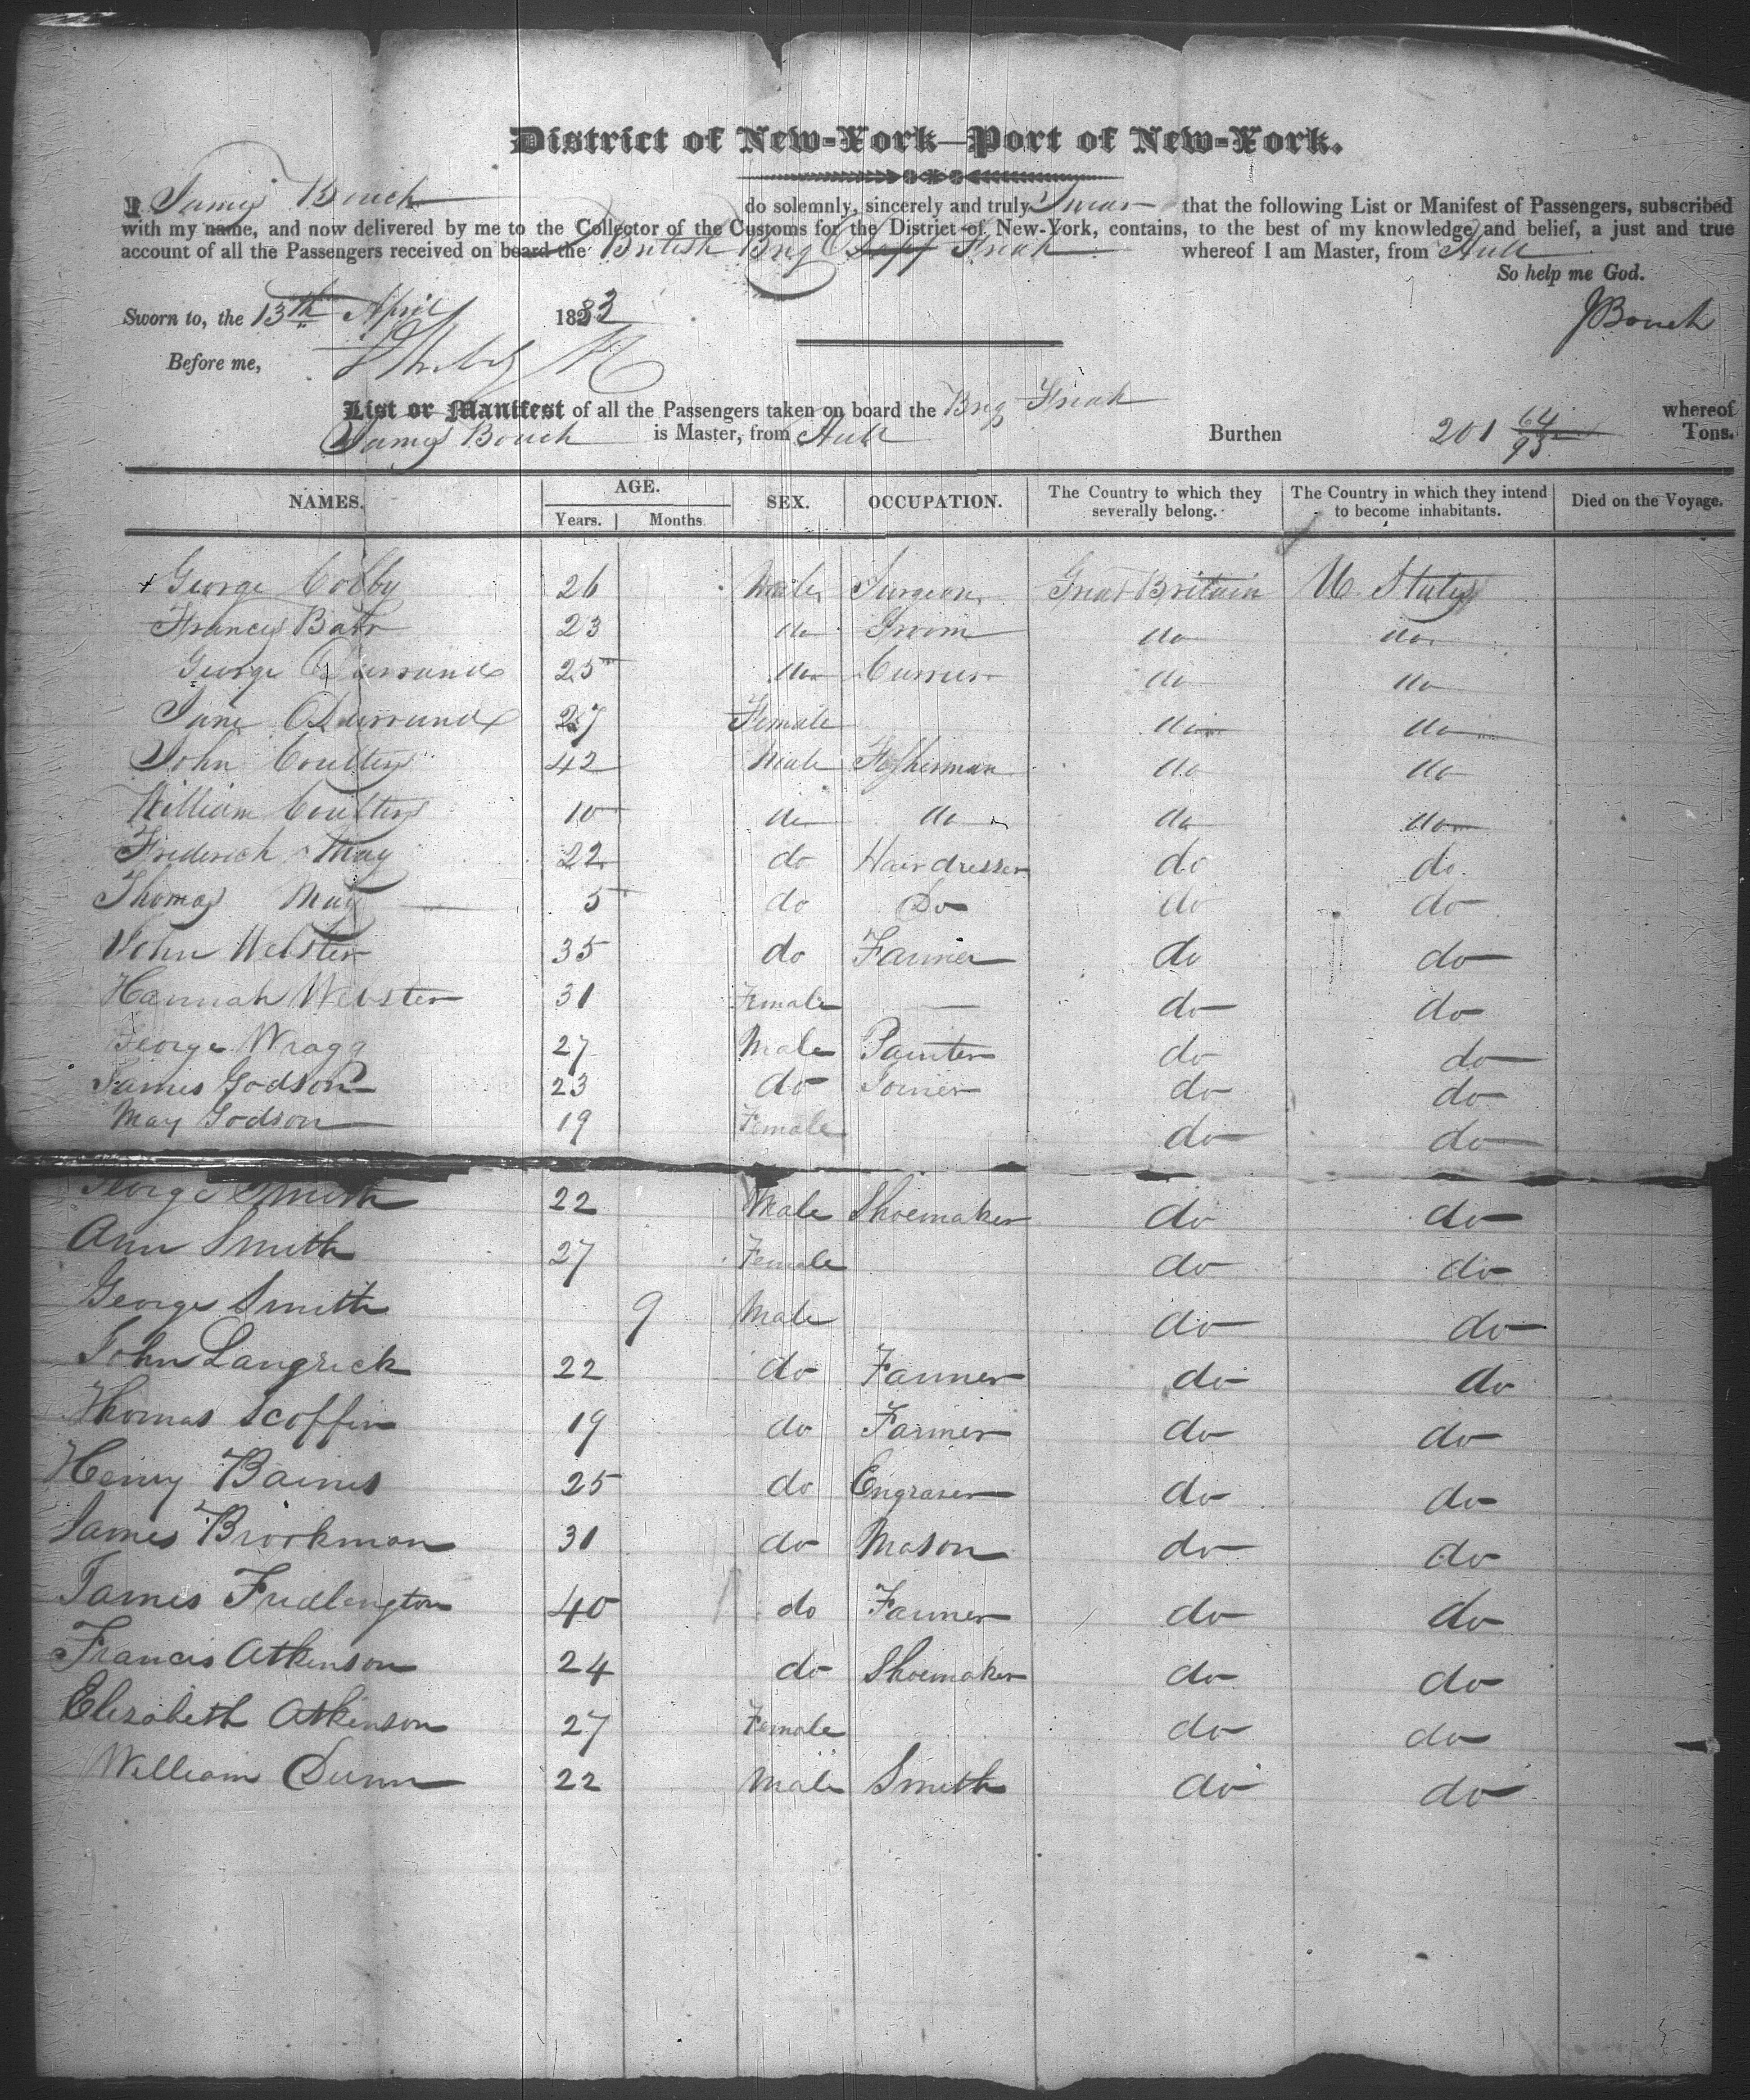 District of New-York—Port of New-York.
I James Bouch do solemnly, sincerely and truly Swear that the following List or Manifest of Passengers, subscribed
with my name, and now delivered by me to the Collector of the Customs for the District of New-York, contains, to the best of my knowledge and belief, a just and true
account of all the Passengers received on board the British Brig whereof I am Master, from Hull
So help me God.
Sworn to, the 13th April 1833
J Bouch
Before me,
List or Manifest of all the Passengers taken on board the Brig whereof
James Bouch is Master, from Hull Burthen 201 64/95 Tons.
NAMES. AGE. SEX. OCCUPATION. The Country to which they severally belong. The Country in which they intend to become inhabitants. Died on the Voyage.
Years. Months
George Colby 26 Male Surgeon Great Britain U. States
Francis 23 do Groom do do
George Durrand 25 do Currier do do
Jane Durrand 27 Female do do
John Coultes 42 Male do do
William Coultes 10 do do do do
Frederick May 22 do Hairdresser do do
Thomas May 5 do Do do do
John Webster 35 do Farmer do do
Hannah Webster 31 Female — do do
George Wragg 27 Male Painter do do
James Godson 23 do Joiner do do
May Godson 19 Female do do
George Smith 22 Male Shoemaker do do
Ann Smith 27 Female do do
George Smith 9 Male do do
John Langrick 22 do Farmer do do
Thomas Scoffin 19 do Farmer do do
Henry Baines 25 do Engraver do do
James Brookman 31 do Mason do do
James Fridlington 40 do Farmer do do
Francis Atkinson 24 do Shoemaker do do
Elizabeth Atkinson 27 Female do do
William Dunn 22 Male Smith do do